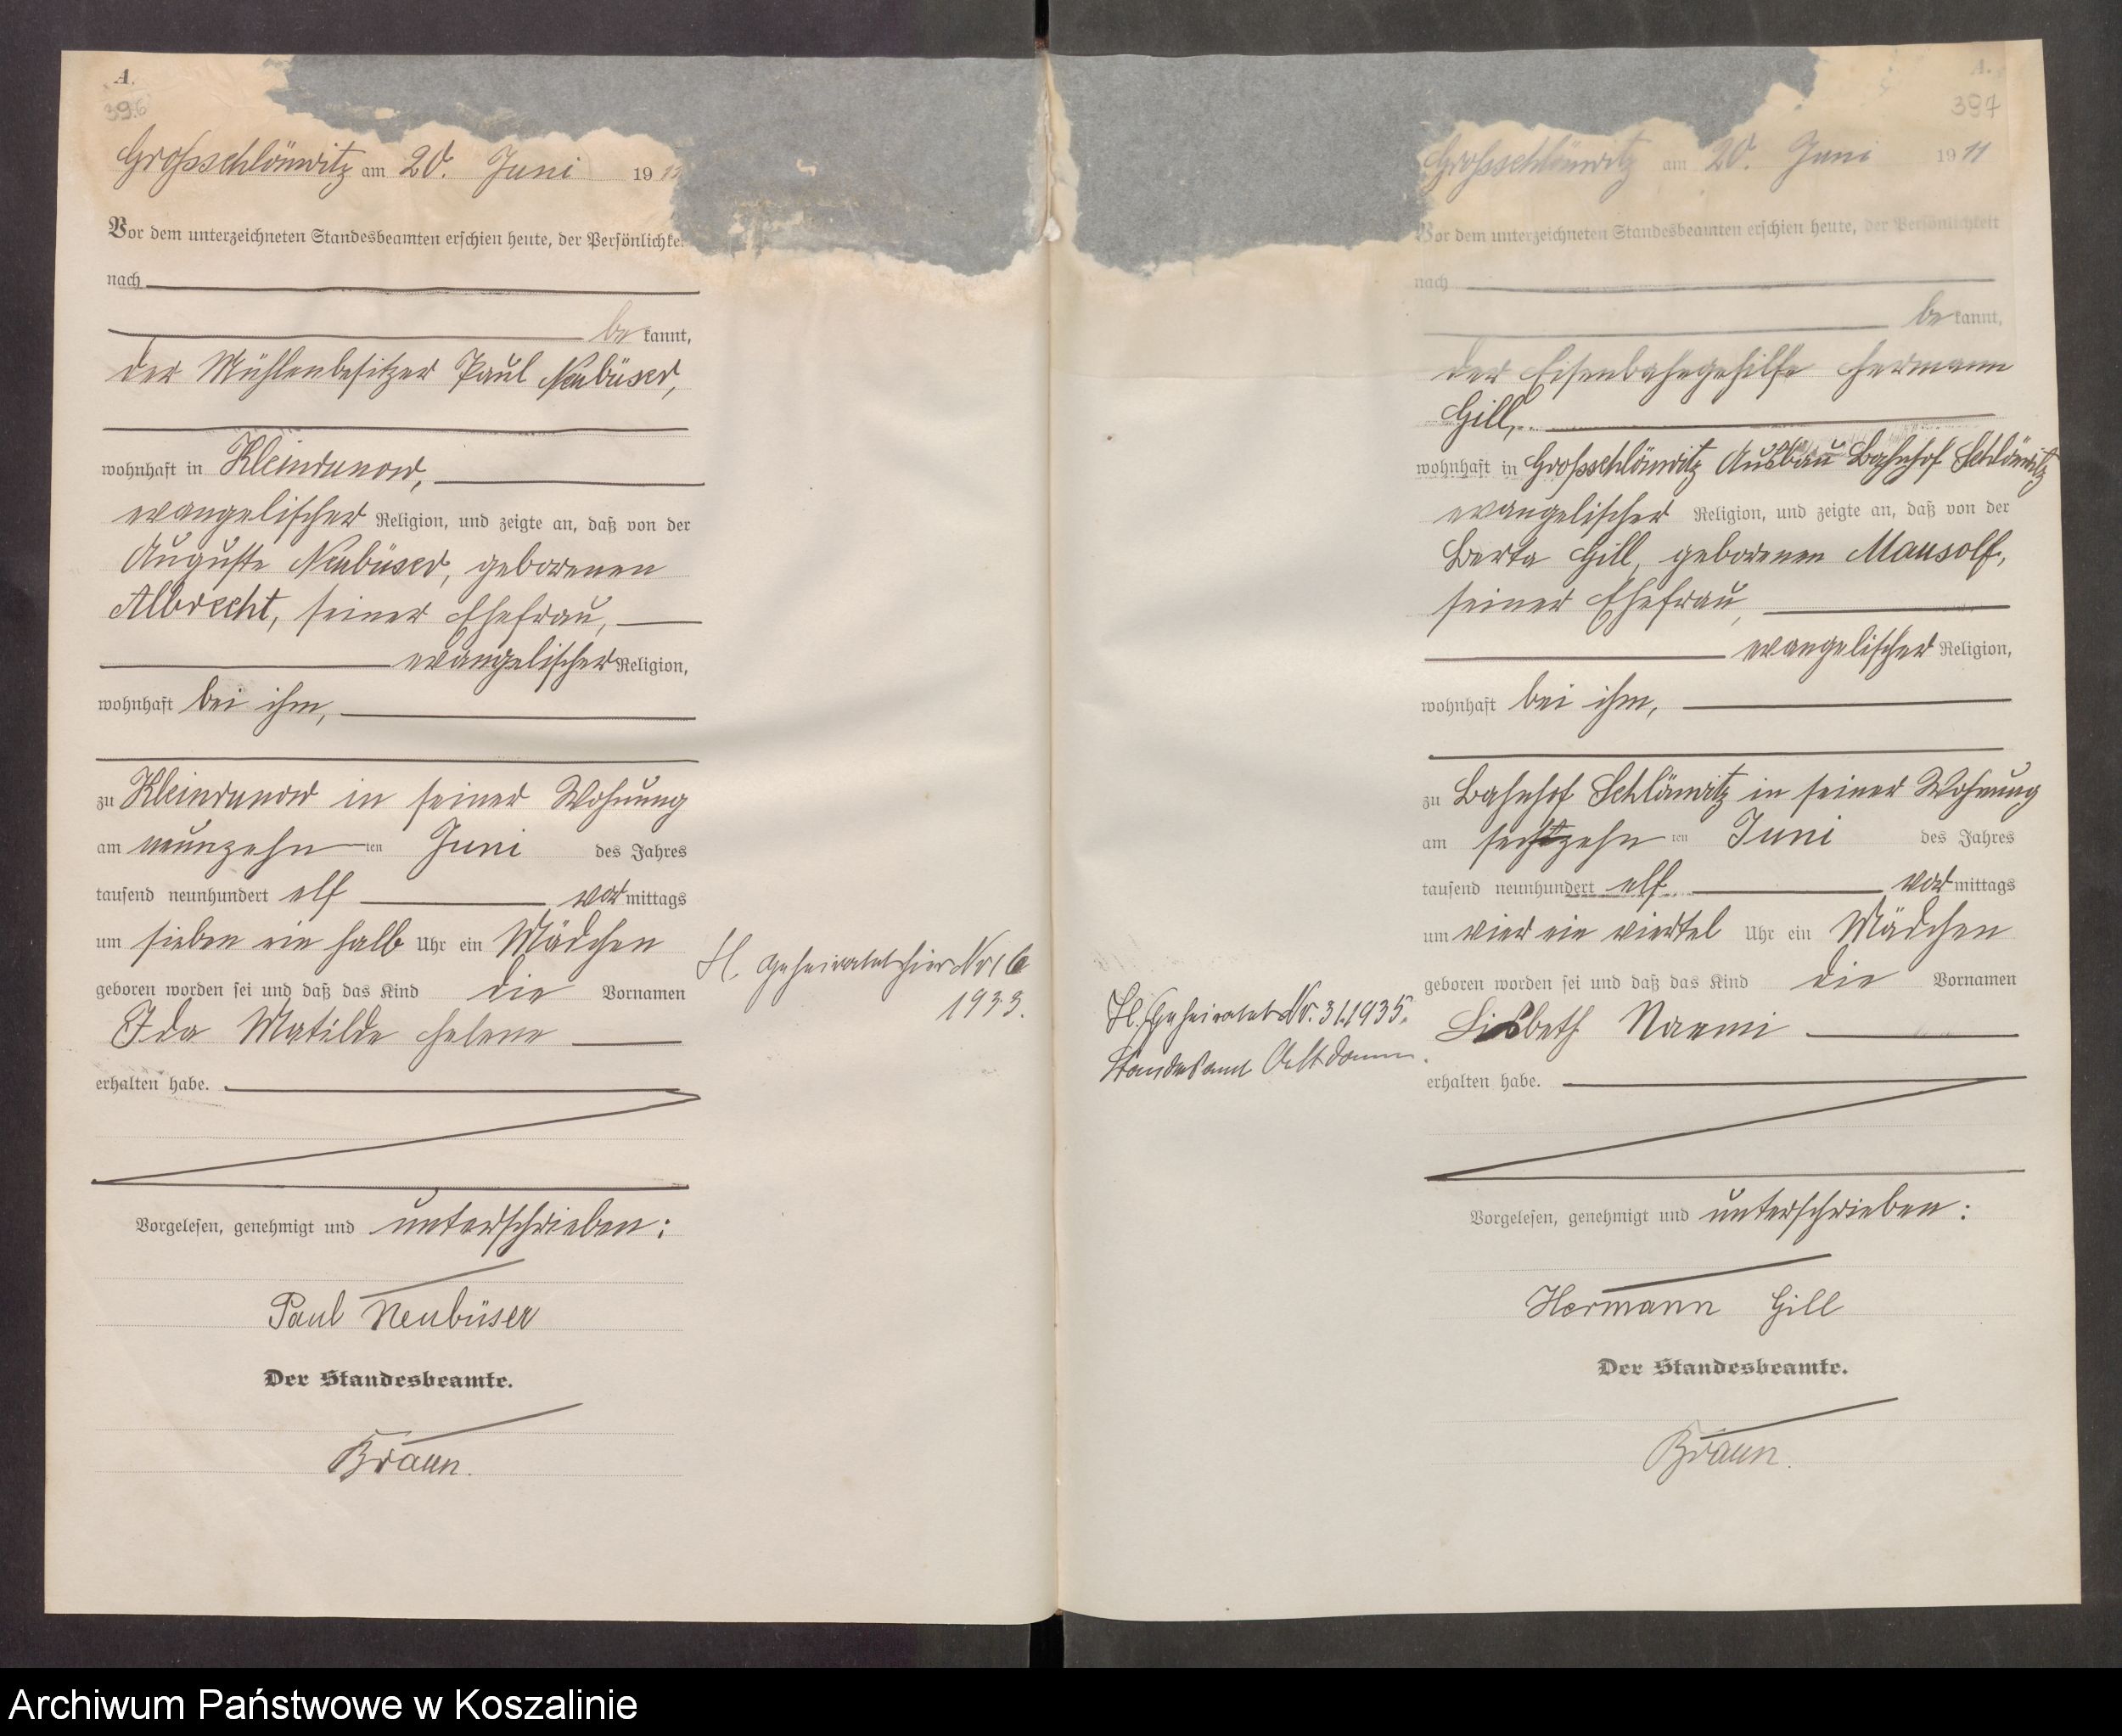 A.
396
Grossschlönwitz am 20. Juni 1911
Vor dem unterzeichneten Standesbeamten erschien heute, der Persönlichke
nach
be kannt,
der Mühlenbesitzer Paul Neubüser,
wohnhaft in Kleinrunow,
evangelischer Religion, und zeigte an, daß von der
Auguste Neubüser, geborenen
Albrecht, seiner Ehefrau,
evangelischer Religion,
wohnhaft bei ihm,
zu Kleinrunow in seiner Wohnung
am neunzehn ten Juni des Jahres
tausend neunhundert elf vor mittags
um sieben ein halb Uhr ein Mädchen
geboren worden sei und daß das Kind die Vornamen
Ida Matilde Helene
erhalten habe.
Vorgelesen, genehmigt und unterschrieben:
Paul Neubüser
Der Standesbeamte.
Braun.
H. Geheiratet hier Nr 16
1933.
A.
397
Grossschlönwitz am 20. Juni 1911
Vor dem unterzeichneten Standesbeamten erschien heute, der Persönlichkeit
nach
be kannt,
der Eisenbahngehilfe Hermann
Gill,
wohnhaft in Grossschlönwitz Ausbau Bahnhof Schlönwitz
evangelischer Religion, und zeigte an, daß von der
Berta Gill, geborenen Mausolf,
seiner Ehefrau,
evangelischer Religion,
wohnhaft bei ihm,
zu Bahnhof Schlönwitz in seiner Wohnung
am sechzehn ten Juni des Jahres
tausend neunhundert elf vor mittags
um vier ein viertel Uhr ein Mädchen
geboren worden sei und daß das Kind die Vornamen
Lisbeth Naemi
erhalten habe.
Vorgelesen, genehmigt und unterschrieben:
Hermann Gill
Der Standesbeamte.
Braun.
H. Geheiratet Nr. 31.1935.
Standesamt Altdamm.
Archiwum Państwowe w Koszalinie